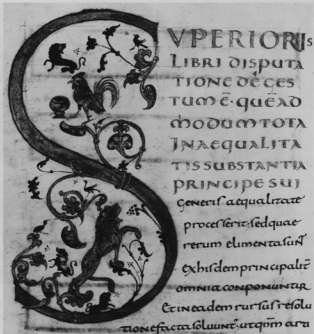 SUPERIORIS
LIBRI DISPUTA
TIONE DĒCES
TUM Ē· QUĒAD
MODUM TOTA
INAEQUALITA
TIS SUBSTANTIA
PRINCIPE SUI
Generis aequalitate
processerit· sed quae
rerum elementa sunt
Ex hisdem principalit̄
omnia conponuntur
Et in eadem rursus resolu
tione facta soluunt̄· ut qm̄ arti